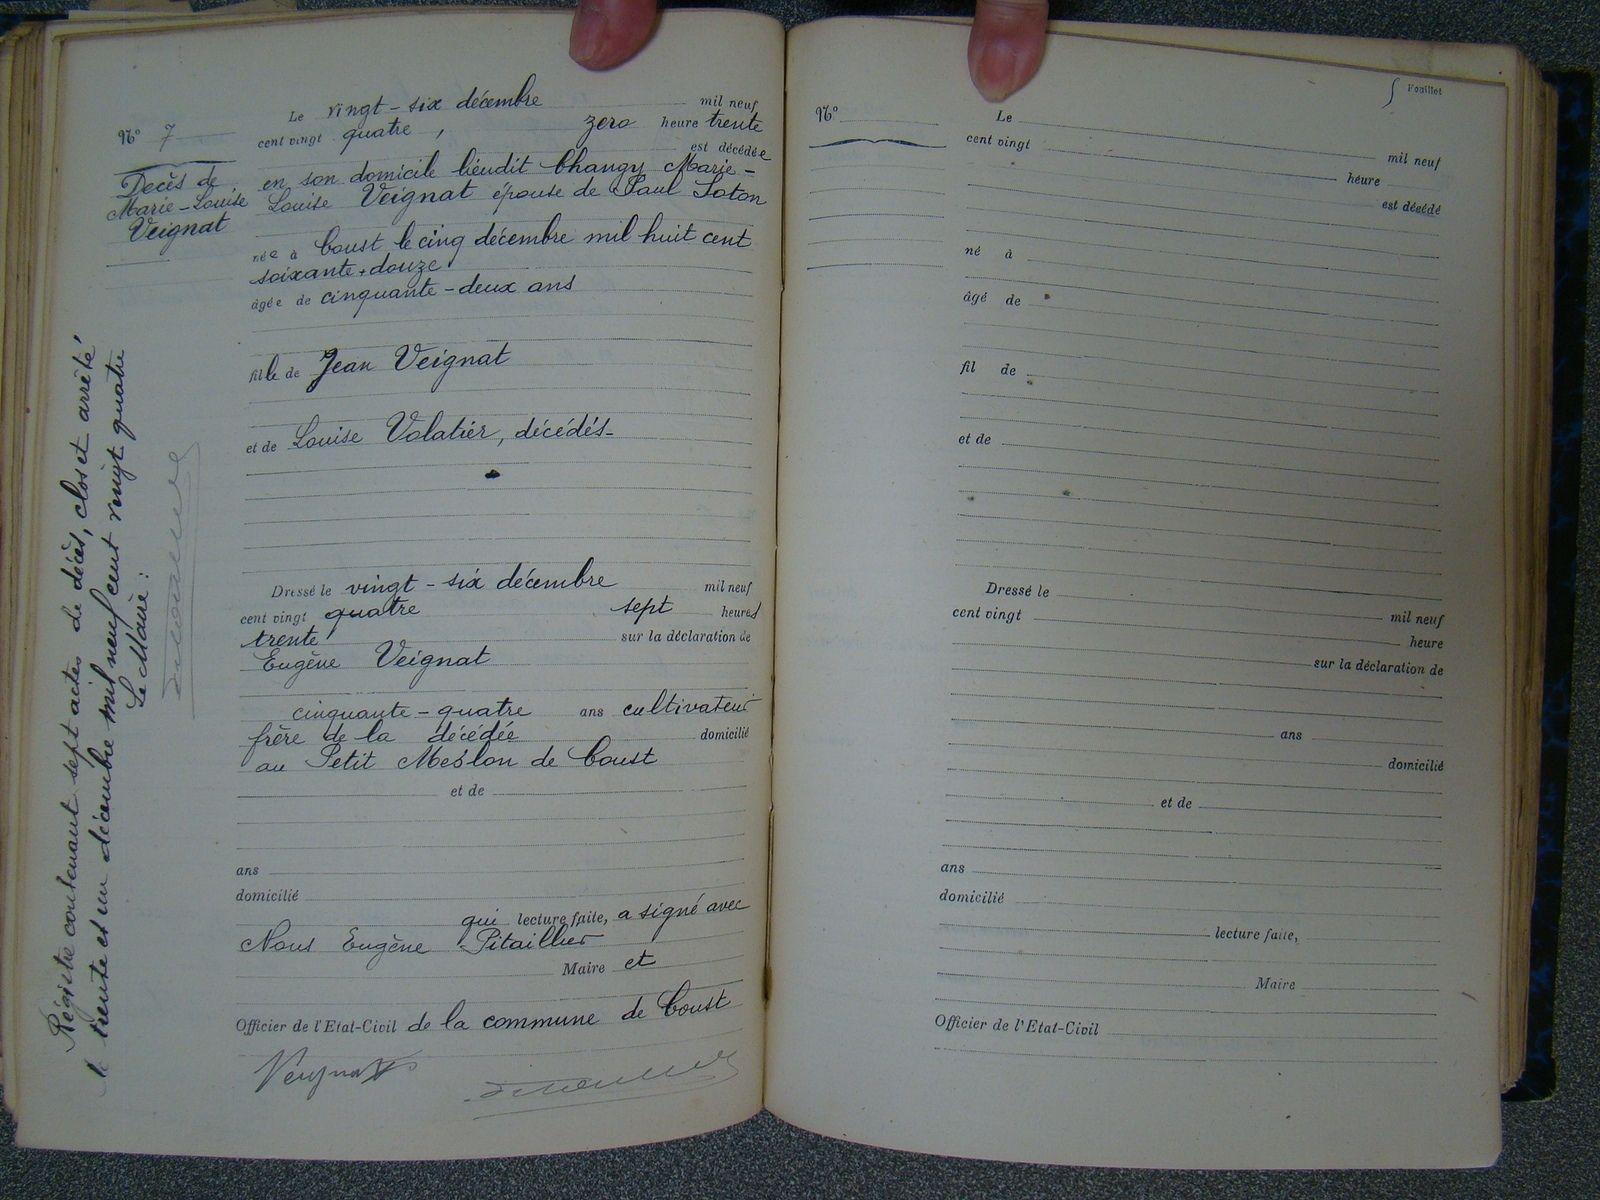 N° 7
Décès de
Marie-Louise
Veignat
Le vingt-six décembre mil neuf
cent vingt quatre, zero heure trente
est décédée
en son domicile lieudit Changy Marie-
Louise Veignat épouse de Paul Loton
née à Coust le cinq décembre mil huit cent
soixante-douze
âgée de cinquante-deux ans
fille de Jean Veignat
et de Louise Volatier, décédés-
Dressé le vingt-six décembre mil neuf
cent vingt quatre sept heures
trente sur la déclaration de
Eugène Veignat
cinquante-quatre ans cultivateur
frère de la décédée domicilié
au Petit Meslon de Coust
et de
ans
domicilié
qui lecture faite, a signé avec
Nous Eugène Pitaillier
Maire et
Officier de l'Etat-Civil de la commune de Coust
Veignat
Régistre contenant sept actes de décès, clos et arrêté
le trente et un décembre mil neuf cent vingt quatre
Le Maire:
Feuillet
N°
Le mil neuf
cent vingt heure
est décédé
né à
âgé de
fil de
et de
Dressé le mil neuf
cent vingt heure
sur la déclaration de
ans
domicilié
et de
ans
domicilié
lecture faite,
Maire
Officier de l'Etat-Civil